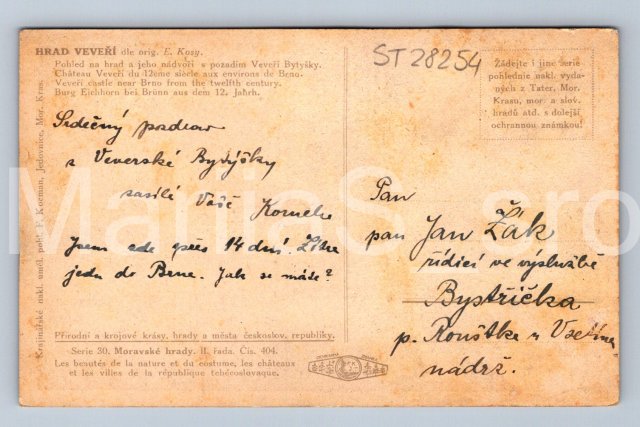 HRAD VEVEŘÍ dle orig. E. Kosy.
Pohled na hrad a jeho nádvoří s pozadím Veveří Bytyšky.
Château Veveří du 12ème siècle aux environs de Brno.
Veveří castle near Brno from the twelfth century.
Burg Eichhorn bei Brünn aus dem 12. Jahrh.
ST 28254
Žádejte i jiné serie
pohlednic nakl. vyda-
ných z Tater, Mor.
Krasu, mor. a slov.
hradů atd. s dolejší
ochrannou známkou!
Srdečný pozdrav
z Veverské Bytýšky
zasílá Vaše Kornelie
Jsem zde přes 14 dní. Zítra
jedu do Brna. Jak se máte?
Pan
pan Jan Žák
řídící ve výslužbě
Bystřička
p. Rouštka u Vsetína
nádrž.
Krajinářské nakl. uměl. pohl. F. Kocman, Jedovnice, Mor. Kras.
Přírodní a krojové krásy, hrady a města českoslov. republiky.
Serie 30. Moravské hrady. II. řada. Čís. 404.
Les beautés de la nature et du costume, les châteaux
et les villes de la république tchécoslovaque.
OCHRANNÁ ZNÁMKA
ManiaS sro